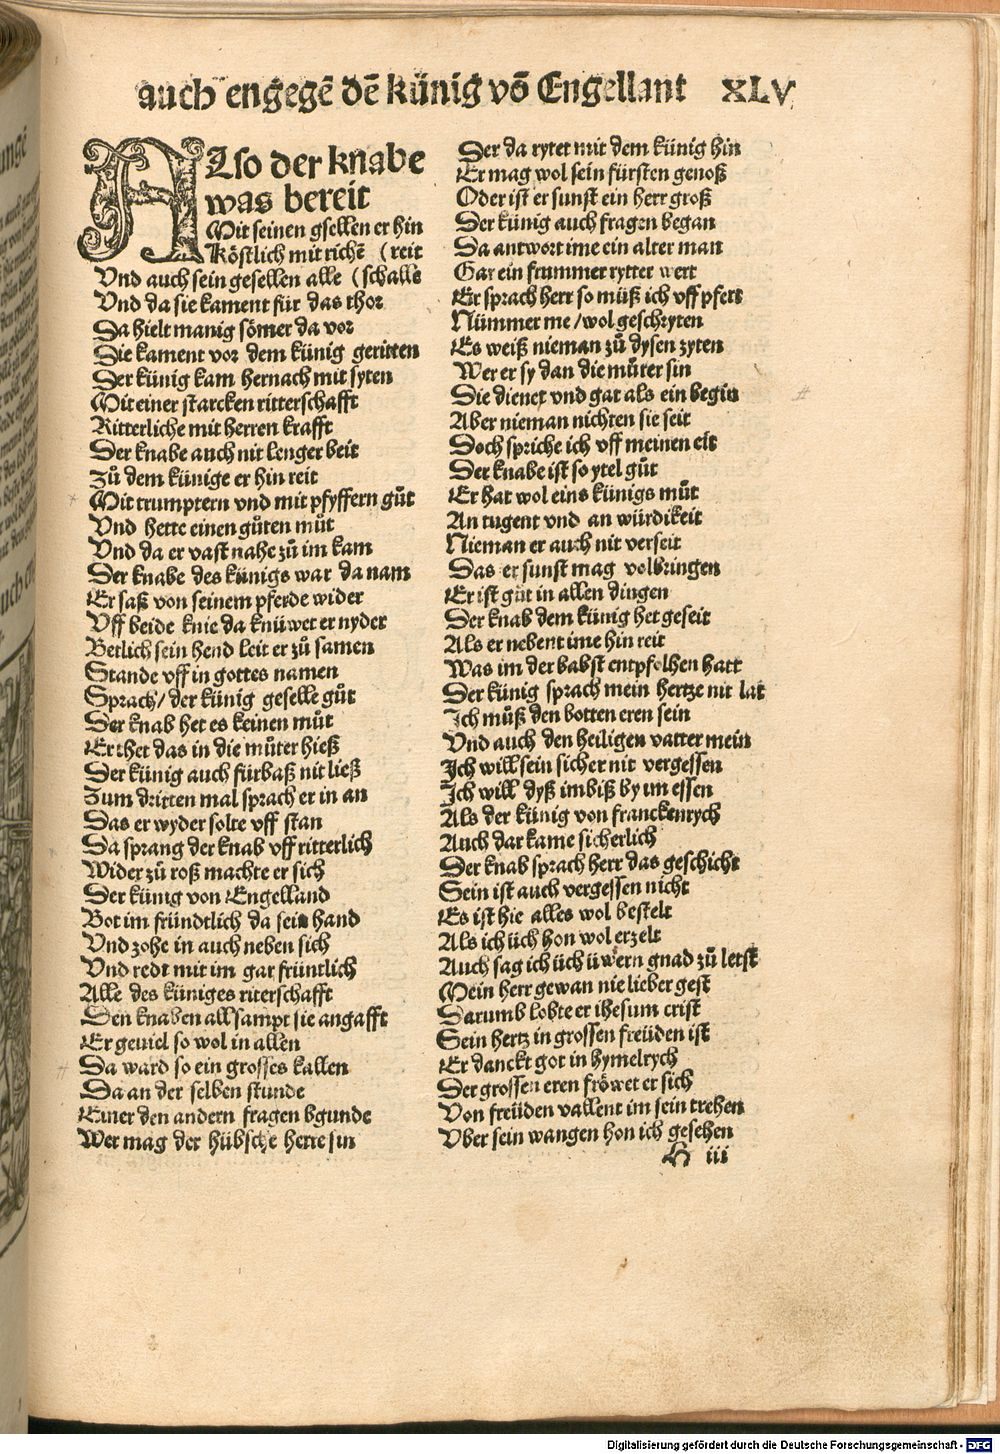 auch engegē dē künig vō Engellant XLV
ALso der knabe
was bereit
Mit seinen gsellen er hin
köstlich mit richē (reit
Vnd auch sein gesellen alle (schalle
Vnd da sie kament für das thor
Da hielt manig sömer da vor
Die kament vor dem künig geritten
Der künig kam hernach mit syten
Mit einer starcken ritterschafft
Ritterliche mit herren krafft
Der knabe auch nit lenger beit
Zů dem künige er hin reit
Mit trumptern vnd mit pfyffern gůt
Vnd hette einen gůten můt
Vnd da er vast nahe zů im kam
Der knabe des künigs war da nam
Er saß von seinem pferde wider
Vff beide knie da knüwet er nyder
Betlich sein hend leit er zů samen
Stande vff in gottes namen
Sprach/ der künig geselle gůt
Der knab het es keinen můt
Er thet das in die můter hieß
Der künig auch fürbaß nit ließ
Zum dritten mal sprach er in an
Das er wyder solte vff stan
Da sprang der knab vff ritterlich
Wider zů roß machte er sich
Der künig von Engelland
Bot im fründtlich da sein hand
Vnd zohe in auch neben sich
Vnd redt mit im gar früntlich
Alle des küniges riterschafft
Den knaben allsampt sie angafft
Er geuiel so wol in allen
Da ward so ein grosses kallen
Da an der selben stunde
Einer den andern fragen bgunde
Wer mag der hübsche herre sin
Der da rytet mit dem künig hin
Er mag wol sein fürsten genoß
Oder ist er sunst ein herr groß
Der künig auch fragen began
Da antwort ime ein alter man
Gar ein frummer rytter wert
Er sprach herr so můß ich vff pfert
Nümmer me/wol geschryten
Es weiß nieman zů dysen zyten
Wer er sy dan die můter sin
Die dienet vnd gat als ein begin
Aber nieman nichten sie seit
Doch spriche ich vff meinen eit
Der knabe ist so ytel gůt
Er hat wol eins künigs můt
An tugent vnd an würdikeit
Nieman er auch nit verseit
Das er sunst mag volbringen
Er ist gůt in allen dingen
Der knab dem künig het geseit
Als er nebent ime hin reit
Was im der babst entpfolhen hatt
Der künig sprach mein hertze nit lat
Ich můß den botten eren sein
Vnd auch den heiligen vatter mein
Ich will sein sicher nit vergessen
Ich will dyß imbiß by im essen
Als der künig von franckenrych
Auch dar kame sicherlich
Der knab sprach herr das geschicht
Sein ist auch vergessen nicht
Es ist hie alles wol bestelt
Als ich üch hon wol erzelt
Auch sag ich üch üwern gnad zů letst
Mein herr gewan nie lieber gest
Darumb lobte er ihesum crist
Sein hertz in grossen freüden ist
Er danckt got in hymelrych
Der grossen eren fröwet er sich
Von freüden vallent im sein trehen
Vber sein wangen hon ich gesehen
H iii
Digitalisierung gefördert durch die Deutsche Forschungsgemeinschaft - DFG